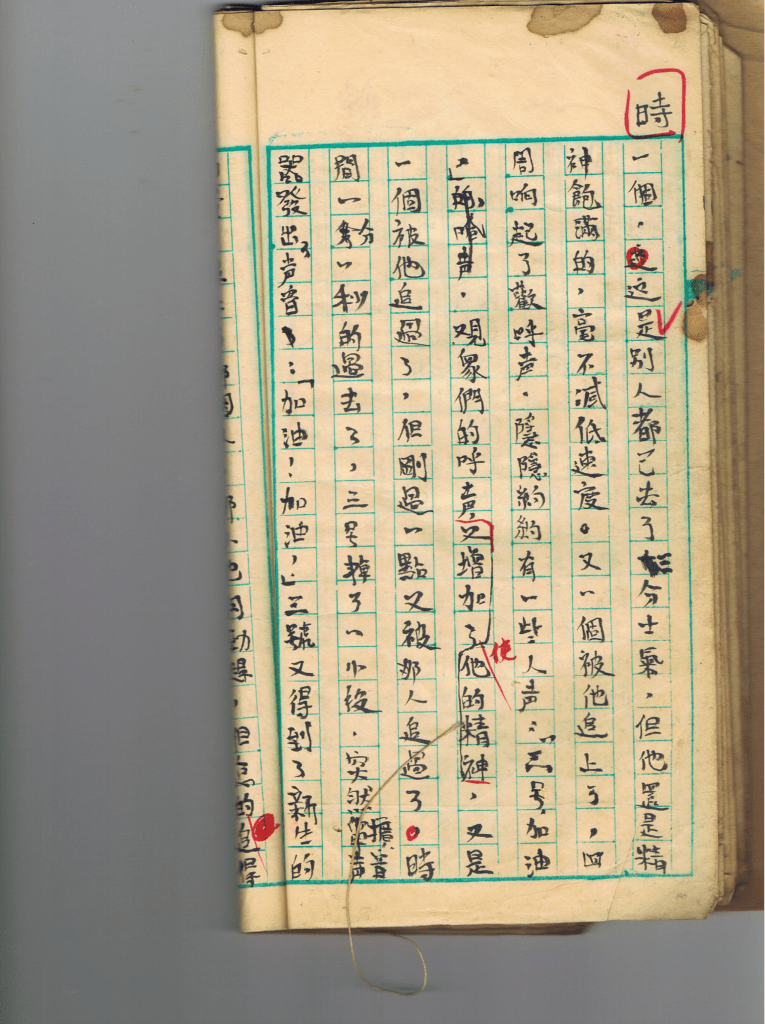 時
一個，這是別人都已去了三分士氣，但他還是精
神飽滿的，毫不減低速度。又一個被他追上了，四
周响起了歡呼声．隱隱約約有一些人声：「三号加油
」喊声．观眾們的呼声又增加了他的精神，又是
使
一個被他追過了，但剛過一點又被那人追過了。時
間一分一秒的過去了，三号掉了一小段．突然擴音
器發出了声音：「加油！加油，」三號又得到了新生的